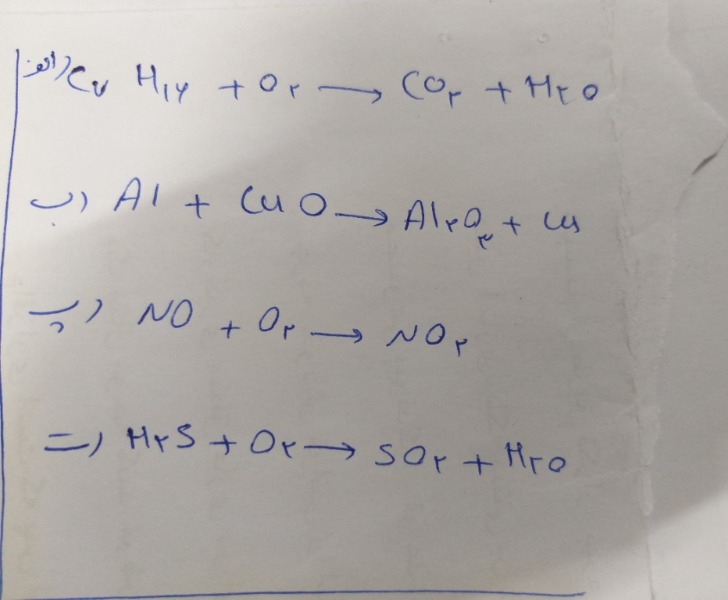 الف) C۷ H۱۶ + O۲ → CO۲ + H۲O
ب) Al + CuO → Al۲O۳ + Cu
پ) NO + O۲ → NO۲
ت) H۲S + O۲ → SO۲ + H۲O